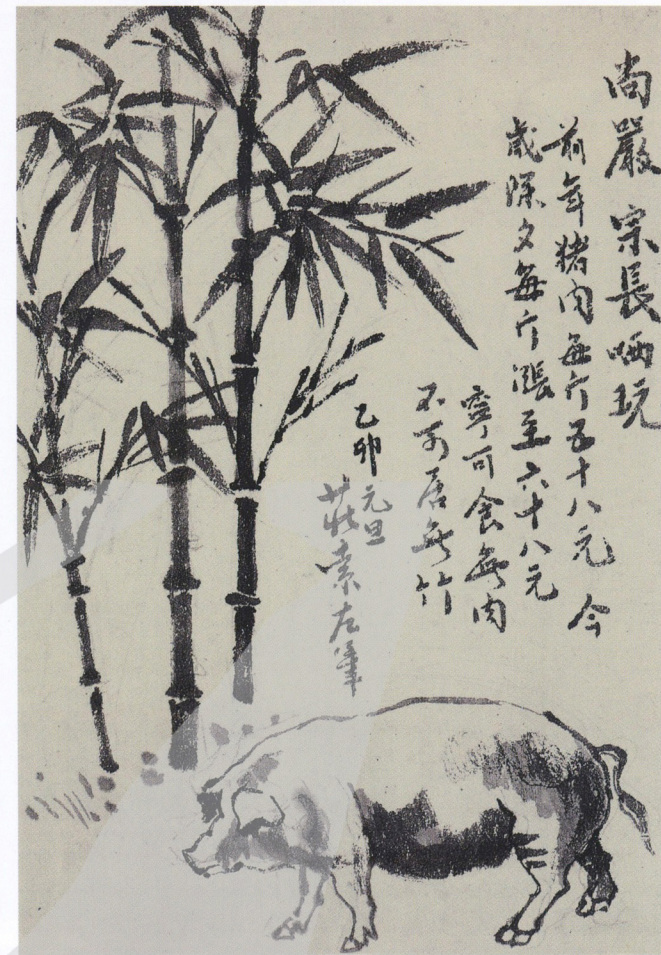 尚嚴 宗長哂玩
前年猪肉每斤五十八元 今
歲除夕每斤漲至六十八元
寧可食無肉
不可居無竹
乙卯元旦
莊索左筆